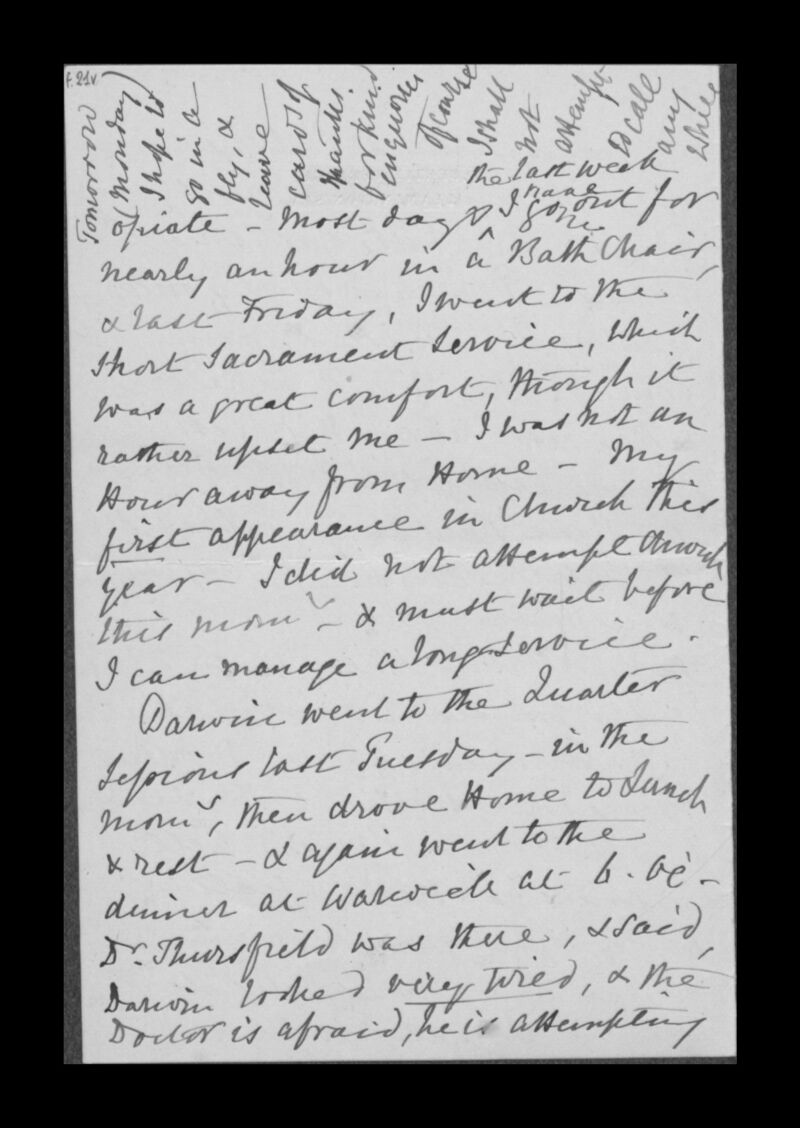 f. 21v
Tomorrow
(Monday)
I hope to
go in a
fly, &
leave
cards of
thanks
for kind
enquiries
Of course
I shall
not
attempt
to call
any
where
the last week
opiate - Most days I have gone out for
nearly an hour in a Bath Chair,
& last Friday, I went to the
Short Sacrament Service, which
was a great comfort, though it
rather upset me - I was not an
Hour away from Home - My
first appearance in Church this
year - I did not attempt Church
this morng - & must wait before
I can manage a long Service.
Darwin went to the Quarter
Sessions last Tuesday - in the
morng, then drove Home to Lunch
& rest - & again went to the
dinner at Warwick at 6. oc -
Dr. Thursfield was there, & said,
Darwin looked very tired, & the
Doctor is afraid, he is attempting